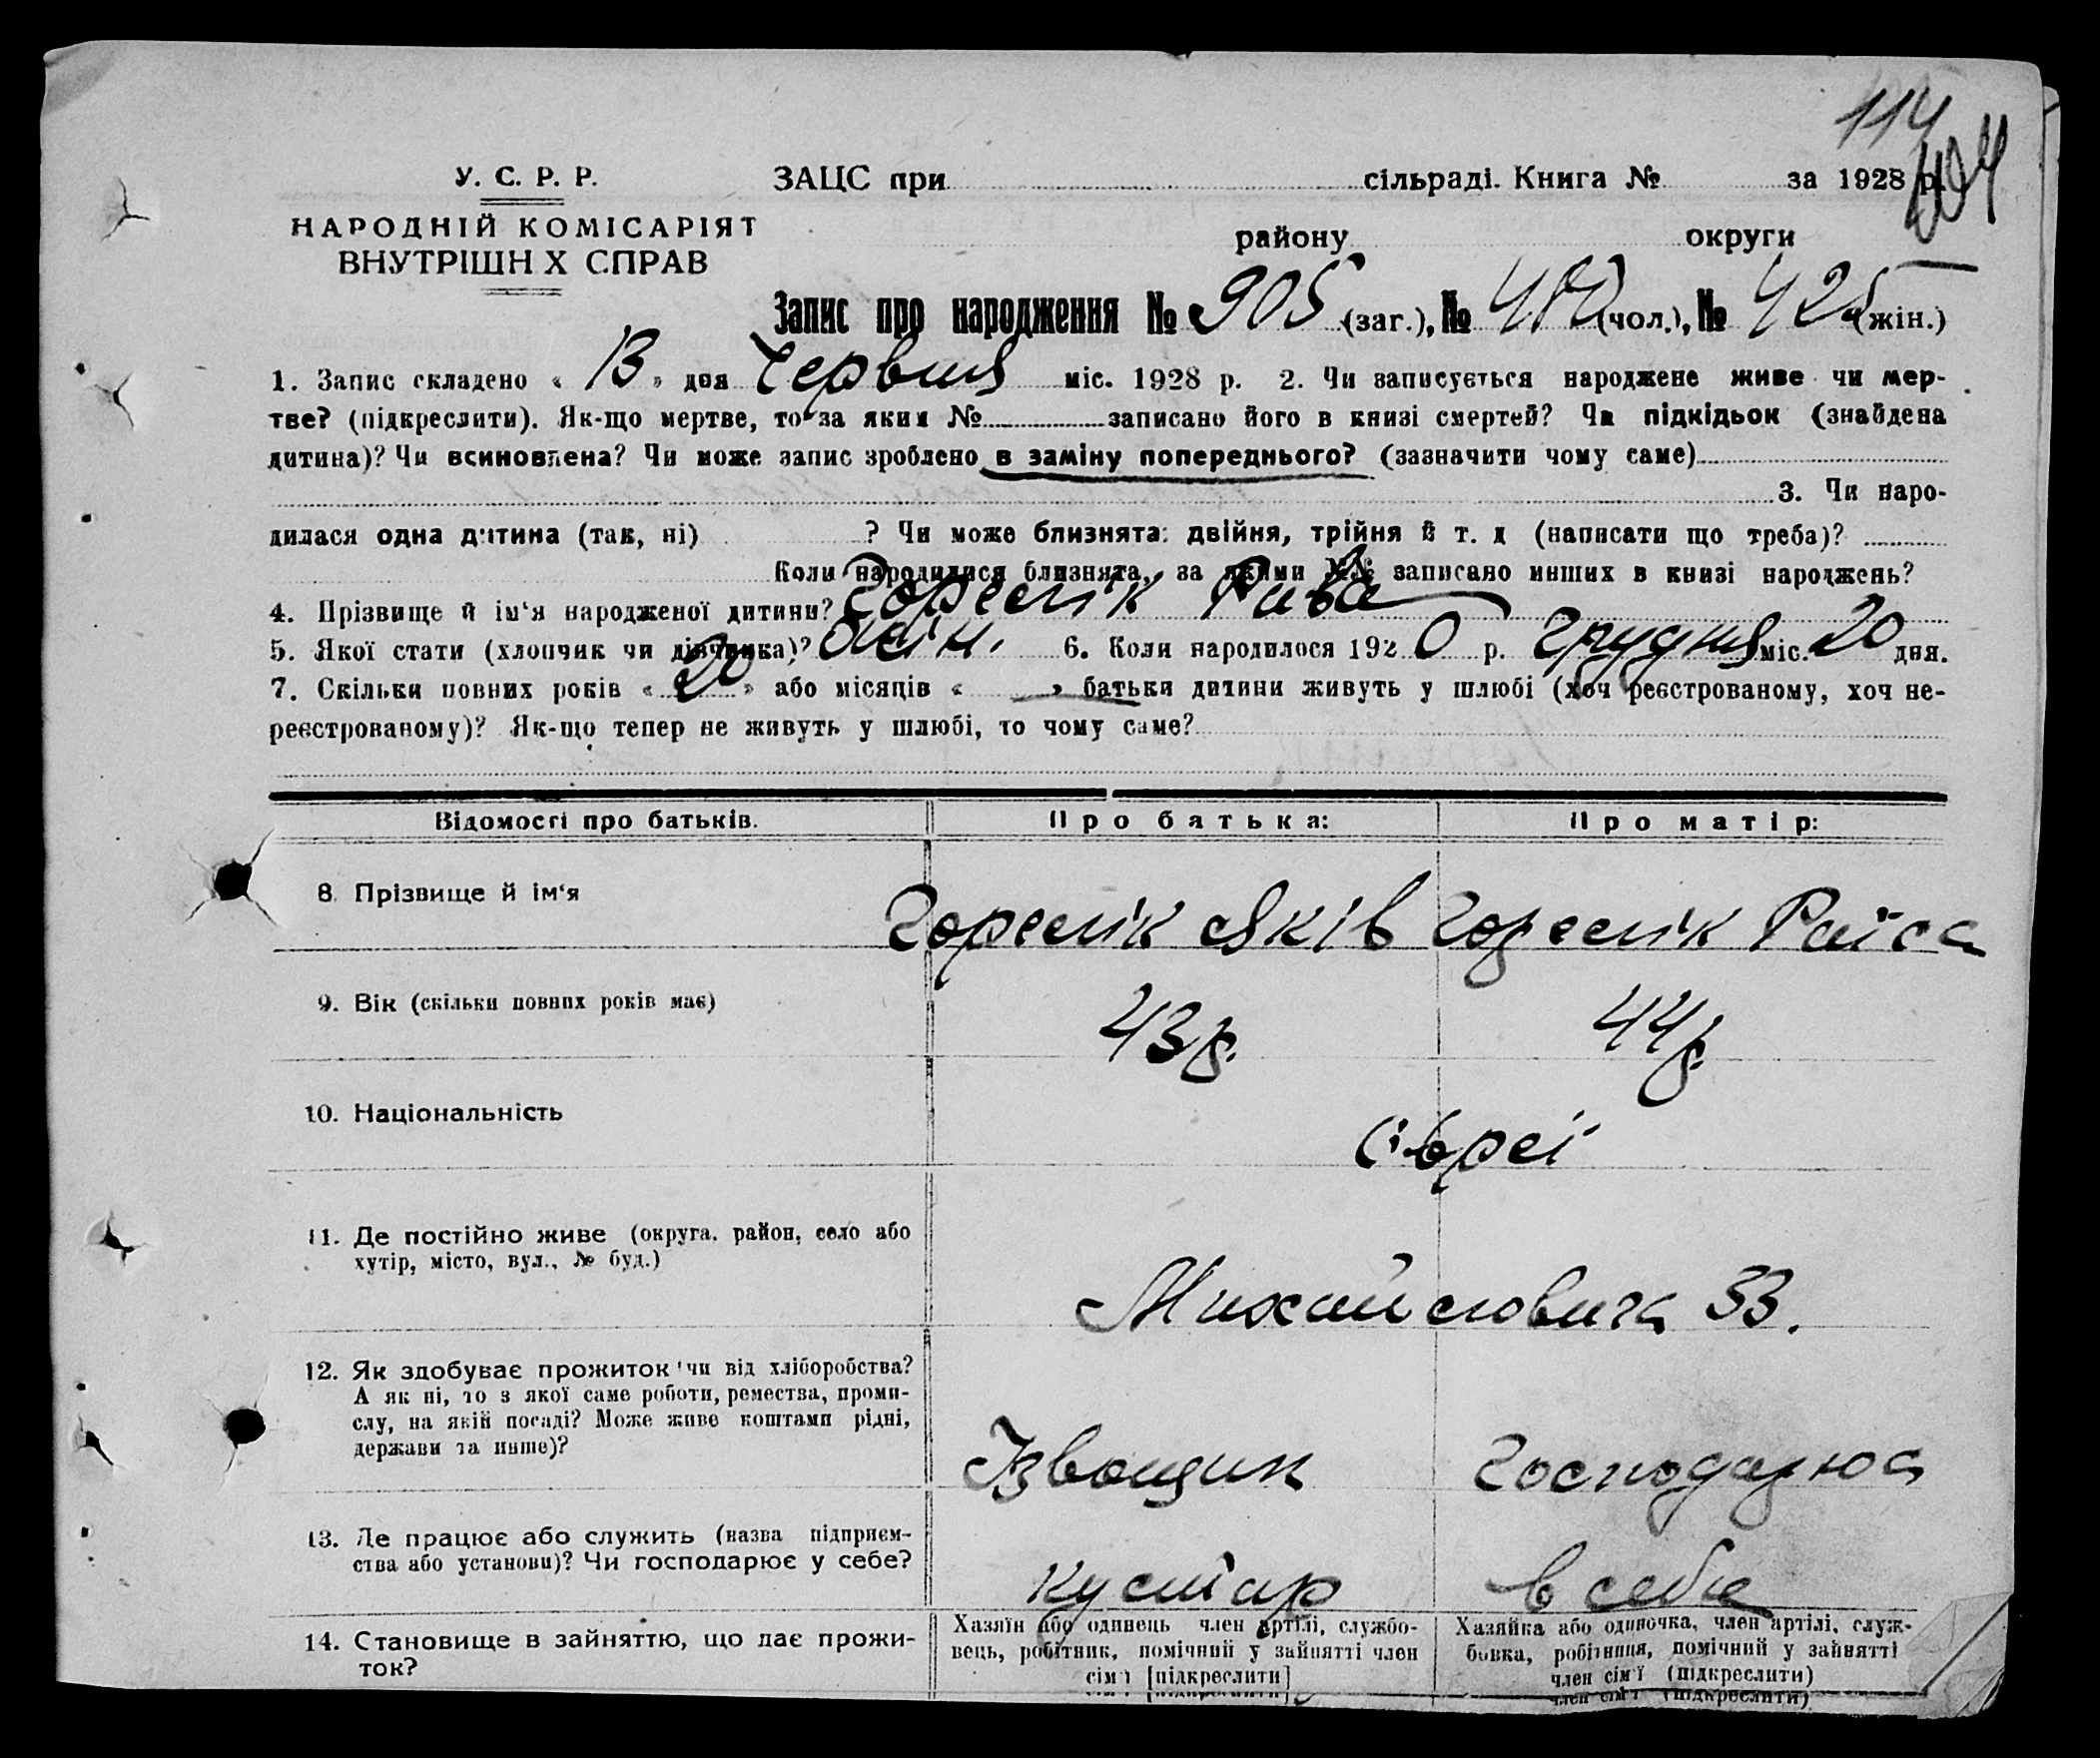 114
404
У. С. Р. Р. ЗАЦС при сільраді. Книга № за 1928 р.
НАРОДНІЙ КОМІСАРІЯТ району округи
ВНУТРІШН Х СПРАВ
Запис про народження № 905 (заг.), № 480 (чол.), № 425 (жін.)
1. Запис складено « 13 » дня Червня міс. 1928 р. 2. Чи записується народжене живе чи мер-
тве? (підкреслити). Як-що мертве, то за яким № записано його в книзі смертей? Чи підкідьок (знайдена
дитина)? Чи всиновлена? Чи може запис зроблено в заміну попереднього? (зазначити чому саме)
3. Чи наро-
дилася одна дитина (так, ні) ? Чи може близнята: двійня, трійня й т. д (написати що треба)?
Коли народилися близнята, за якими №№ записано инших в книзі народжень?
4. Прізвище й ім'я народженої дитини? Горелік Рива
5. Якої стати (хлопчик чи дівчинка)? жін. 6. Коли народилося 1920 р. Грудня міс. 20 дня.
7. Скільки повних років « 20 » або місяців « » батьки дитини живуть у шлюбі (хоч реєстрованому, хоч не-
реєстрованому)? Як-що тепер не живуть у шлюбі, то чому саме?
Відомості про батьків. Про батька: Про матір:
8. Прізвище й ім'я Горелік Яків Горелік Раїса
9. Вік (скільки повних років має) 43 р. 44 р.
10. Національність Євреї
11. Де постійно живе (округа, район, село або
хутір, місто, вул., № буд.)
Михайловича 33.
12. Як здобуває прожиток чи від хліборобства?
А як ні, то з якої саме роботи, ремества, проми-
слу, на якій посаді? Може живе коштами рідні,
держави та инше)?
Ізвощик Господарюа
13. Де працює або служить (назва підприєм-
ства або установи)? Чи господарює у себе?
кустар в себе
14. Становище в зайняттю, що дає прожи-
ток?
Хазяїн або одинець член артілі, службо-
вець, робітник, помічний у зайнятті член
сім'ї [підкреслити]
Хазяйка або одиночка, член артілі, служ-
бовка, робітниця, помічний у зайнятті
член сім'ї (підкреслити)